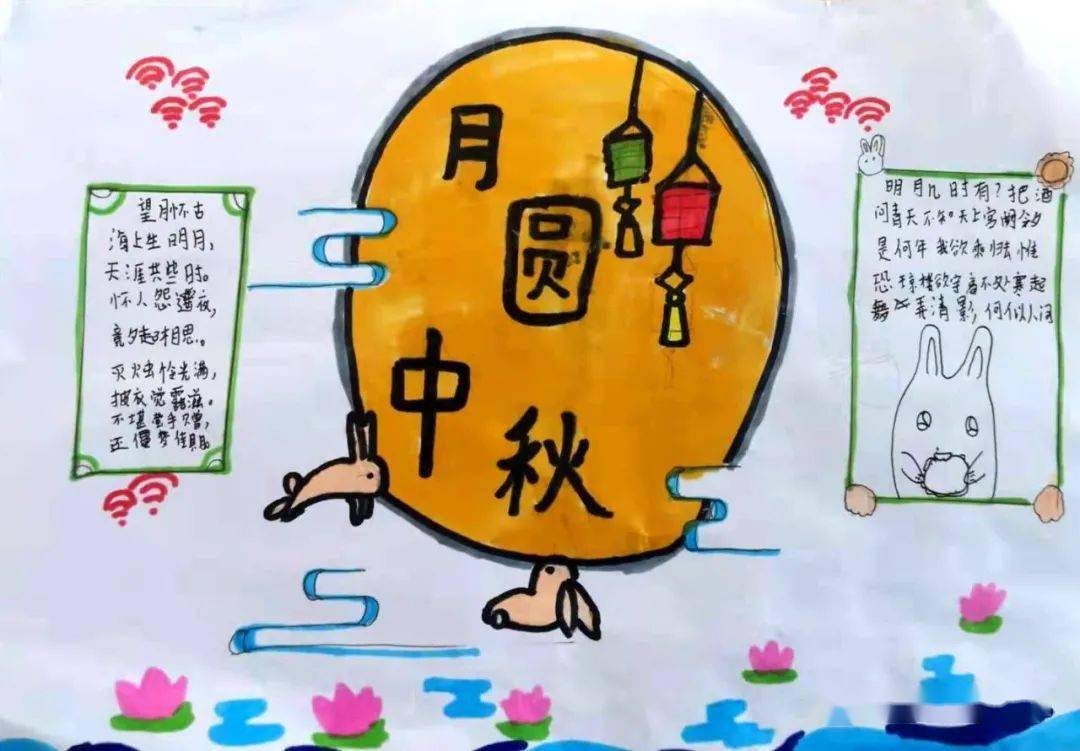 月
圆
中
秋
望月怀古
海上生明月，
天涯共此时。
怀人怨遥夜，
竟夕起相思。
灭烛怜光满，
披衣觉露滋。
不堪盈手赠，
还寝梦佳期
明月几时有？把酒
问青天不知天上宫阙今夕
是何年我欲乘归去惟
恐琼楼欲宇高不处寒起
舞弄清影，何似人间